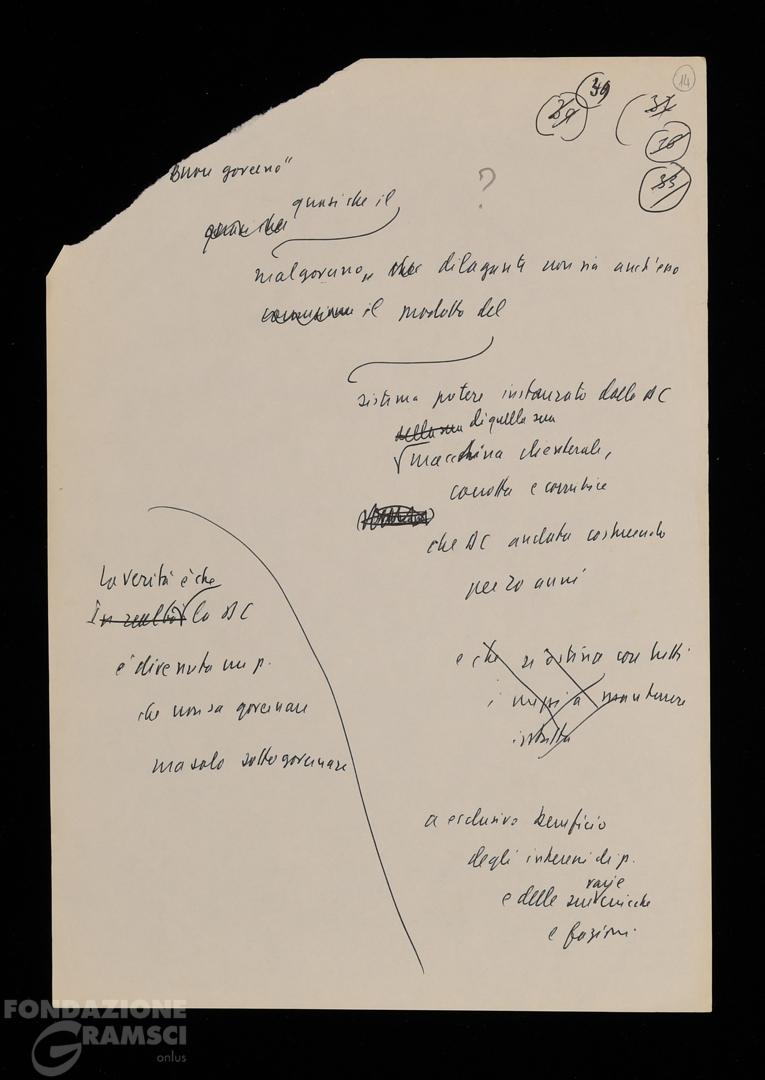 14
39
34
37
38
33
Buon governo"
?
quasi che il
quasi che
malgoverno, dilagante non sia anch'esso
il prodotto del
sistema potere instaurato dalla DC
della sua di quella sua
macchina clientelare,
corrotta e corruttrice
che DC andata costruendo
per 30 anni
La verità è che
In realtà la DC
è divenuta un p.
che non sa governare
ma solo sottogovernare
e che si ostina con tutti
i mezzi a mantenere
a esclusivo beneficio
degli interessi di p.
varie
e delle sue cricche
e fazioni.
FONDAZIONE
GRAMSCI
onlus